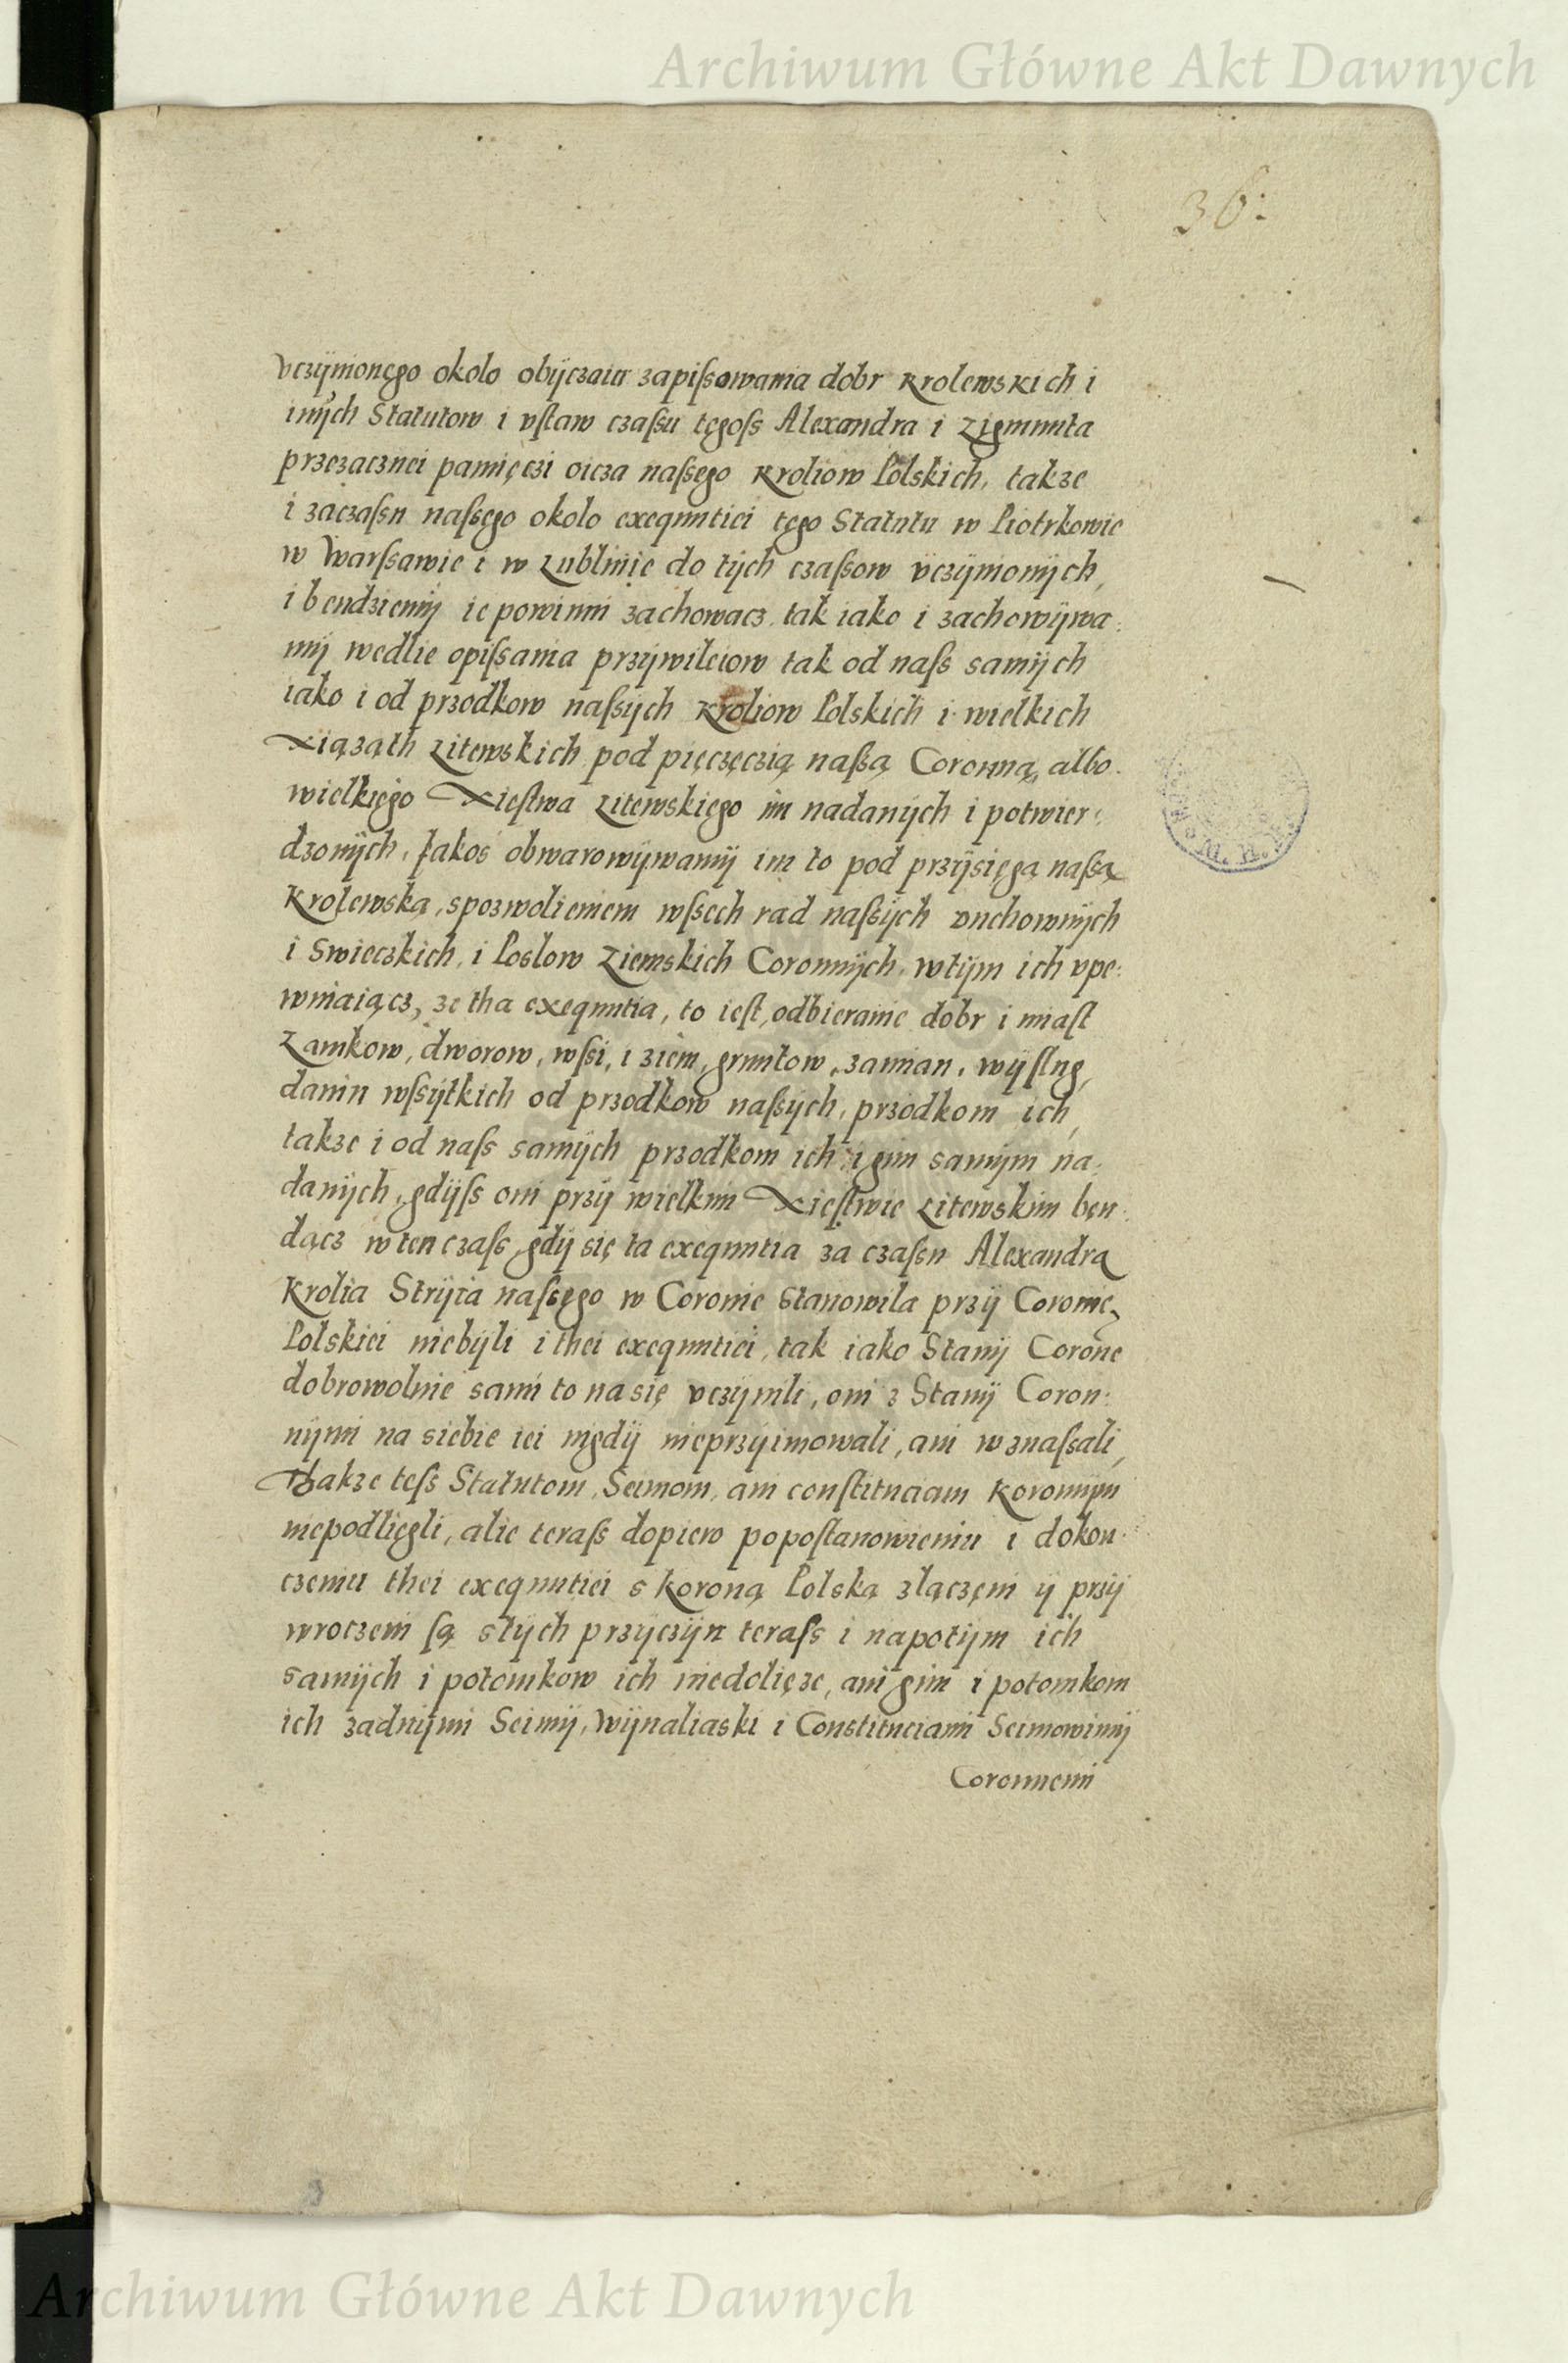 Archiwum Główne Akt Dawnych
36:
vczÿnionęgo okolo obÿczaiu zapiſsowania dobr krolewskich i
inÿch Statutow i vſtaw czaſsu tęgoſs Alexandra i Zigmunta
przezacznei pamięczi oicza naſsego kroliow Polskich, takze
i zaczaſsu naſsęgo okolo exequutiei tęgo Statutu w Piotrkowie
w Warſsawie i w Lublinie do tÿch czaſsow vczÿnionÿch,
i bendziemÿ ie powinni zachowacz tak iako i zachowÿwa:
mÿ wedlie opiſsania przÿwileiow tak od naſs samÿch
iako i od przodkow naſsÿch kroliow Polskich i wielkich
Xiążąth Litewskich pod pięczęczią naſsą Coronną, albo
wielkięgo Xięſtwa Litewskięgo im nadanÿch i potwier:
dzonÿch. Jakoś obwarowÿwamÿ im to pod przÿsięgą naſsą
krolewską, spozwolieniem wſsech rad naſsÿch duchownÿch
i swieczkich, i Poslow Ziemskich Coronnÿch, wtÿm ich vpe:
wniaiącz, ze tha exequutia, to ieſt, odbieranie dobr i miaſt
Zamkow, dworow, wſsi, i ziem, gruntow, zamian, wÿſlug,
danin wſsÿtkich od przodkow naſsÿch, przodkom ich,
takze i od naſs samÿch przodkom ich i gim samÿm na:
danÿch, gdÿſs oni przÿ wielkim Xięſtwie Litewskim bęn:
dącz w ten czaſs, gdÿ się ta exequutia za czaſsu Alexandra
krolia Strÿia naſsęgo w Coronie stanowila przÿ Coronie
Polskiei niebÿli i thei exequutiei, tak iako Stanÿ Corone
dobrowolnie sami to na się vczÿnili, oni z Stanÿ Coron:
nÿmi na siebie iei nigdÿ nieprzÿimowali, ani wznaſsali,
Thakze teſs Statutom, Seimom, ani conſtituciam koronnÿm
niepodlięgli, alie teraſs dopiero popoſtanowieniu i dokon:
czeniu thei exequutiei s koroną Polską zlączęni ÿ przÿ
wroczeni ſą stÿch przÿczÿn teraſs i napotÿm ich
samÿch i potomkow ich niedolięze, ani gim i potomkom
ich zadnÿmi Seimÿ, Wÿnaliaski i Constituciami Seimowimÿ
Coronnemi
Archiwum Główne Akt Dawnych